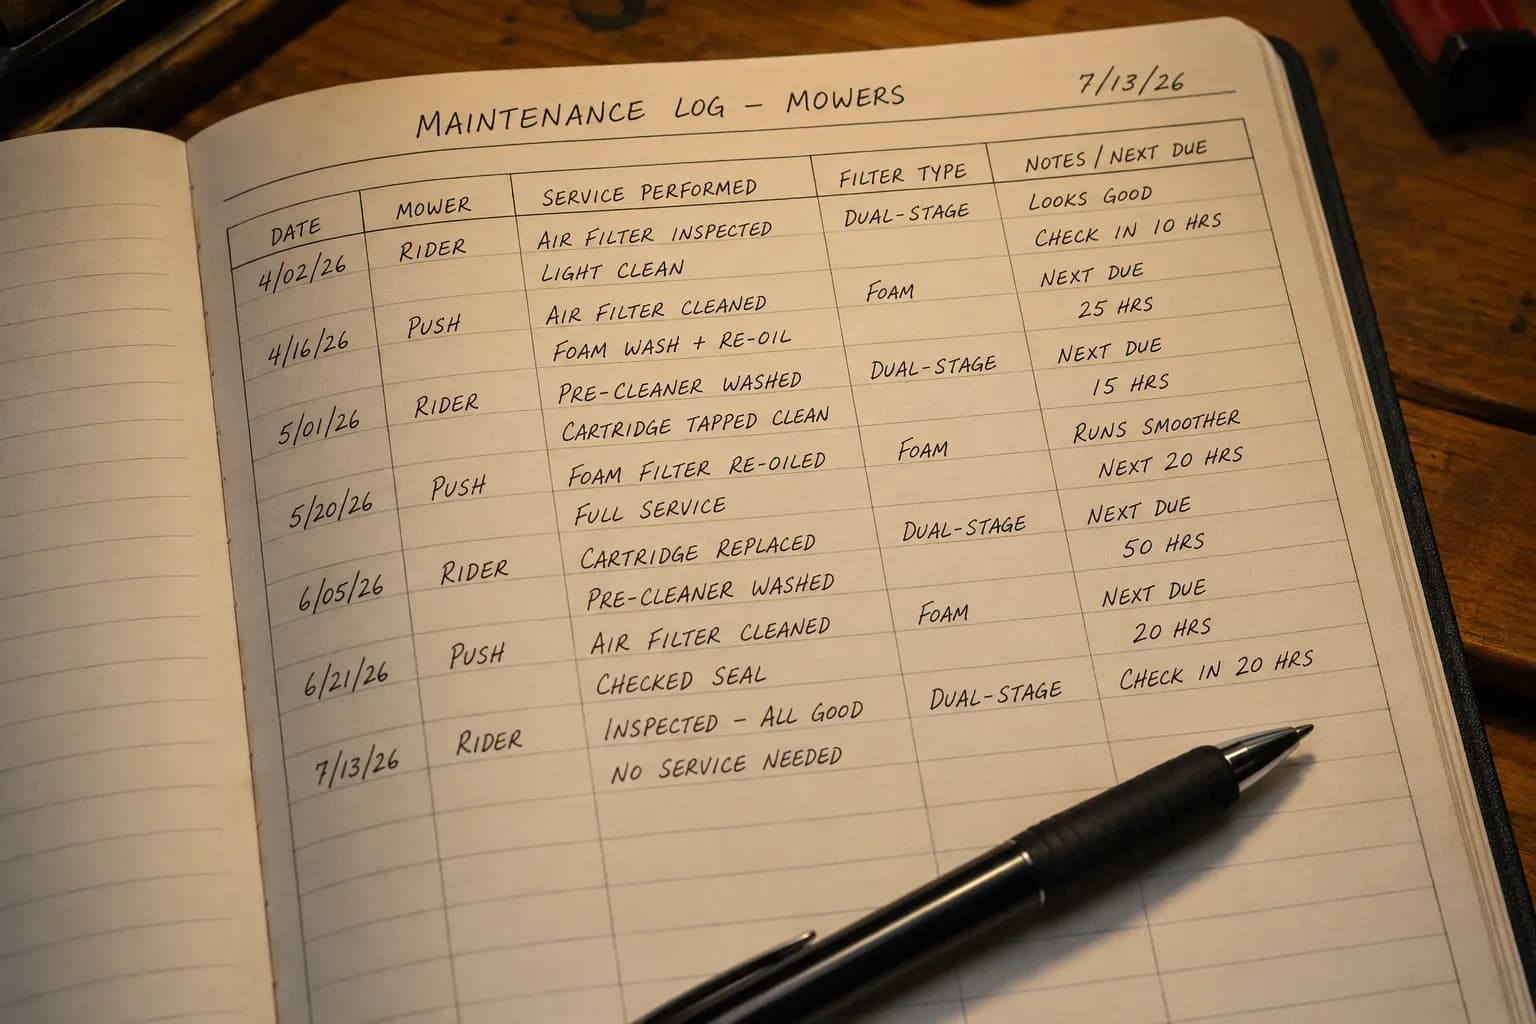 MAINTENANCE LOG – MOWERS 7/13/26
DATE MOWER SERVICE PERFORMED FILTER TYPE NOTES / NEXT DUE
4/02/26 RIDER AIR FILTER INSPECTED DUAL-STAGE LOOKS GOOD
LIGHT CLEAN CHECK IN 10 HRS
4/16/26 PUSH AIR FILTER CLEANED FOAM NEXT DUE
FOAM WASH + RE-OIL 25 HRS
5/01/26 RIDER PRE-CLEANER WASHED DUAL-STAGE NEXT DUE
CARTRIDGE TAPPED CLEAN 15 HRS
5/20/26 PUSH FOAM FILTER RE-OILED FOAM RUNS SMOOTHER
FULL SERVICE NEXT 20 HRS
6/05/26 RIDER CARTRIDGE REPLACED DUAL-STAGE NEXT DUE
PRE-CLEANER WASHED 50 HRS
6/21/26 PUSH AIR FILTER CLEANED FOAM NEXT DUE
CHECKED SEAL 20 HRS
7/13/26 RIDER INSPECTED – ALL GOOD DUAL-STAGE CHECK IN 20 HRS
NO SERVICE NEEDED